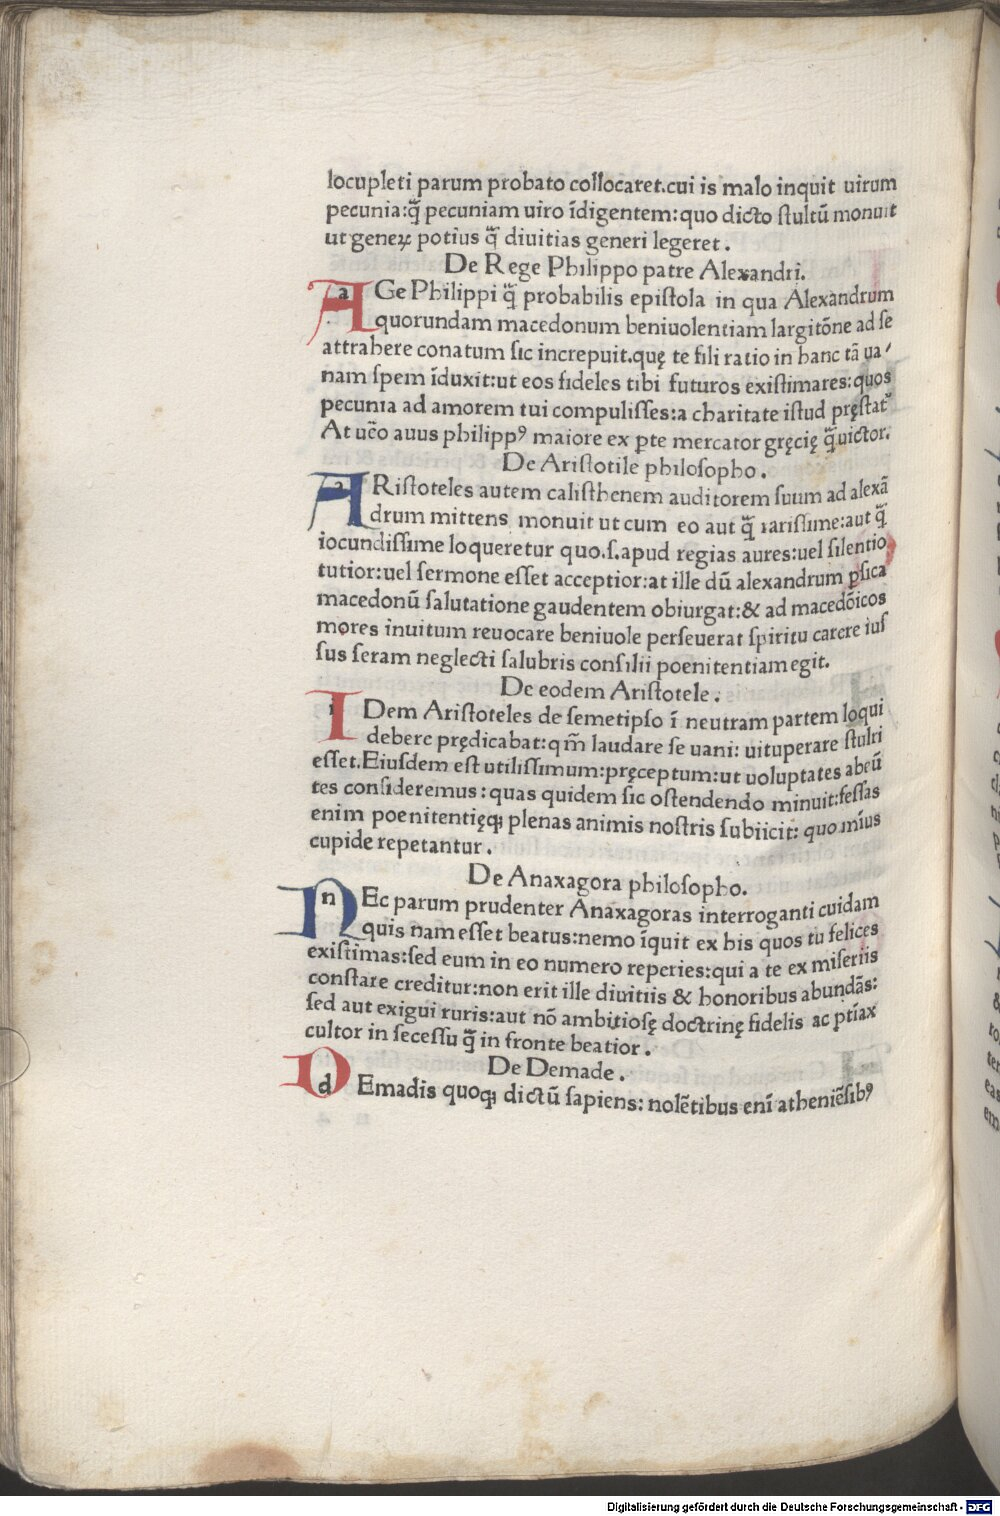 locupleti parum probato collocaret.cui is malo inquit uirum
pecunia:q̃ pecuniam uiro īdigentem:quo dicto ſtultū monuit
ut geneꝝ potius q̃ diuitias generi legeret.
De Rege Philippo patre Alexandri.
AGe Philippi q̃ probabilis epiſtola in qua Alexandrum
quorundam macedonum beniuolentiam largitōne ad ſe
attrahere conatum ſic increpuit.quę te fili ratio in hanc tā ua
nam ſpem īduxit:ut eos fideles tibi futuros exiſtimares:quos
pecunia ad amorem tui compuliſſes:a charitate iſtud pręſtat᷑
At uc̄o avus philippꝰ maiore ex ꝑte mercator gręcię q̃uictor.
De Ariſtotile philoſopho.
ARiſtoteles autem caliſthenem auditorem ſuum ad alexā
drum mittens monuit ut cum eo aut q̃ rariſſime:aut q̃
iocundiſſime loqueretur quo.ſ.apud regias aures:uel ſilentio
tutior:uel ſermone eſſet acceptior:at ille dū alexandrum ꝑſica
macedonū ſalutatione gaudentem obiurgat:& ad macedōicos
mores inuitum reuocare beniuole perſeuerat ſpiritu carere iuſ
ſus ſeram neglecti ſalubris conſilii poenitentiam egit.
De eodem Ariſtotele.
IDem Ariſtoteles de ſemetipſo ī neutram partem loqui
debere prędicabat:qm̄ laudare ſe uani: uituperare ſtulti
eſſet.Eiuſdem eſt utiliſſimum:pręceptum:ut uoluptates abeū
tes conſideremus:quas quidem ſic oſtendendo minuit:feſſas
enim poenitentięqꝫ plenas animis noſtris ſubiicit: quo mīus
cupide repetantur.
De Anaxagora philoſopho.
NEc parum prudenter Anaxagoras interroganti cuidam
quis nam eſſet beatus:nemo īquit ex his quos tu felices
exiſtimas:ſed eum in eo numero reperies:qui a te ex miſeriis
conſtare creditur:non erit ille diuitiis & honoribus abundās:
ſed aut exigui ruris:aut nō ambitioſę doctrinę fidelis ac ptīax
cultor in ſeceſſu q̃ in fronte beatior.
De Demade.
DEmadis quoqꝫ dictū ſapiens: nolētibus enī atheniēſibꝰ
Digitalisierung gefördert durch die Deutsche Forschungsgemeinschaft - DFG